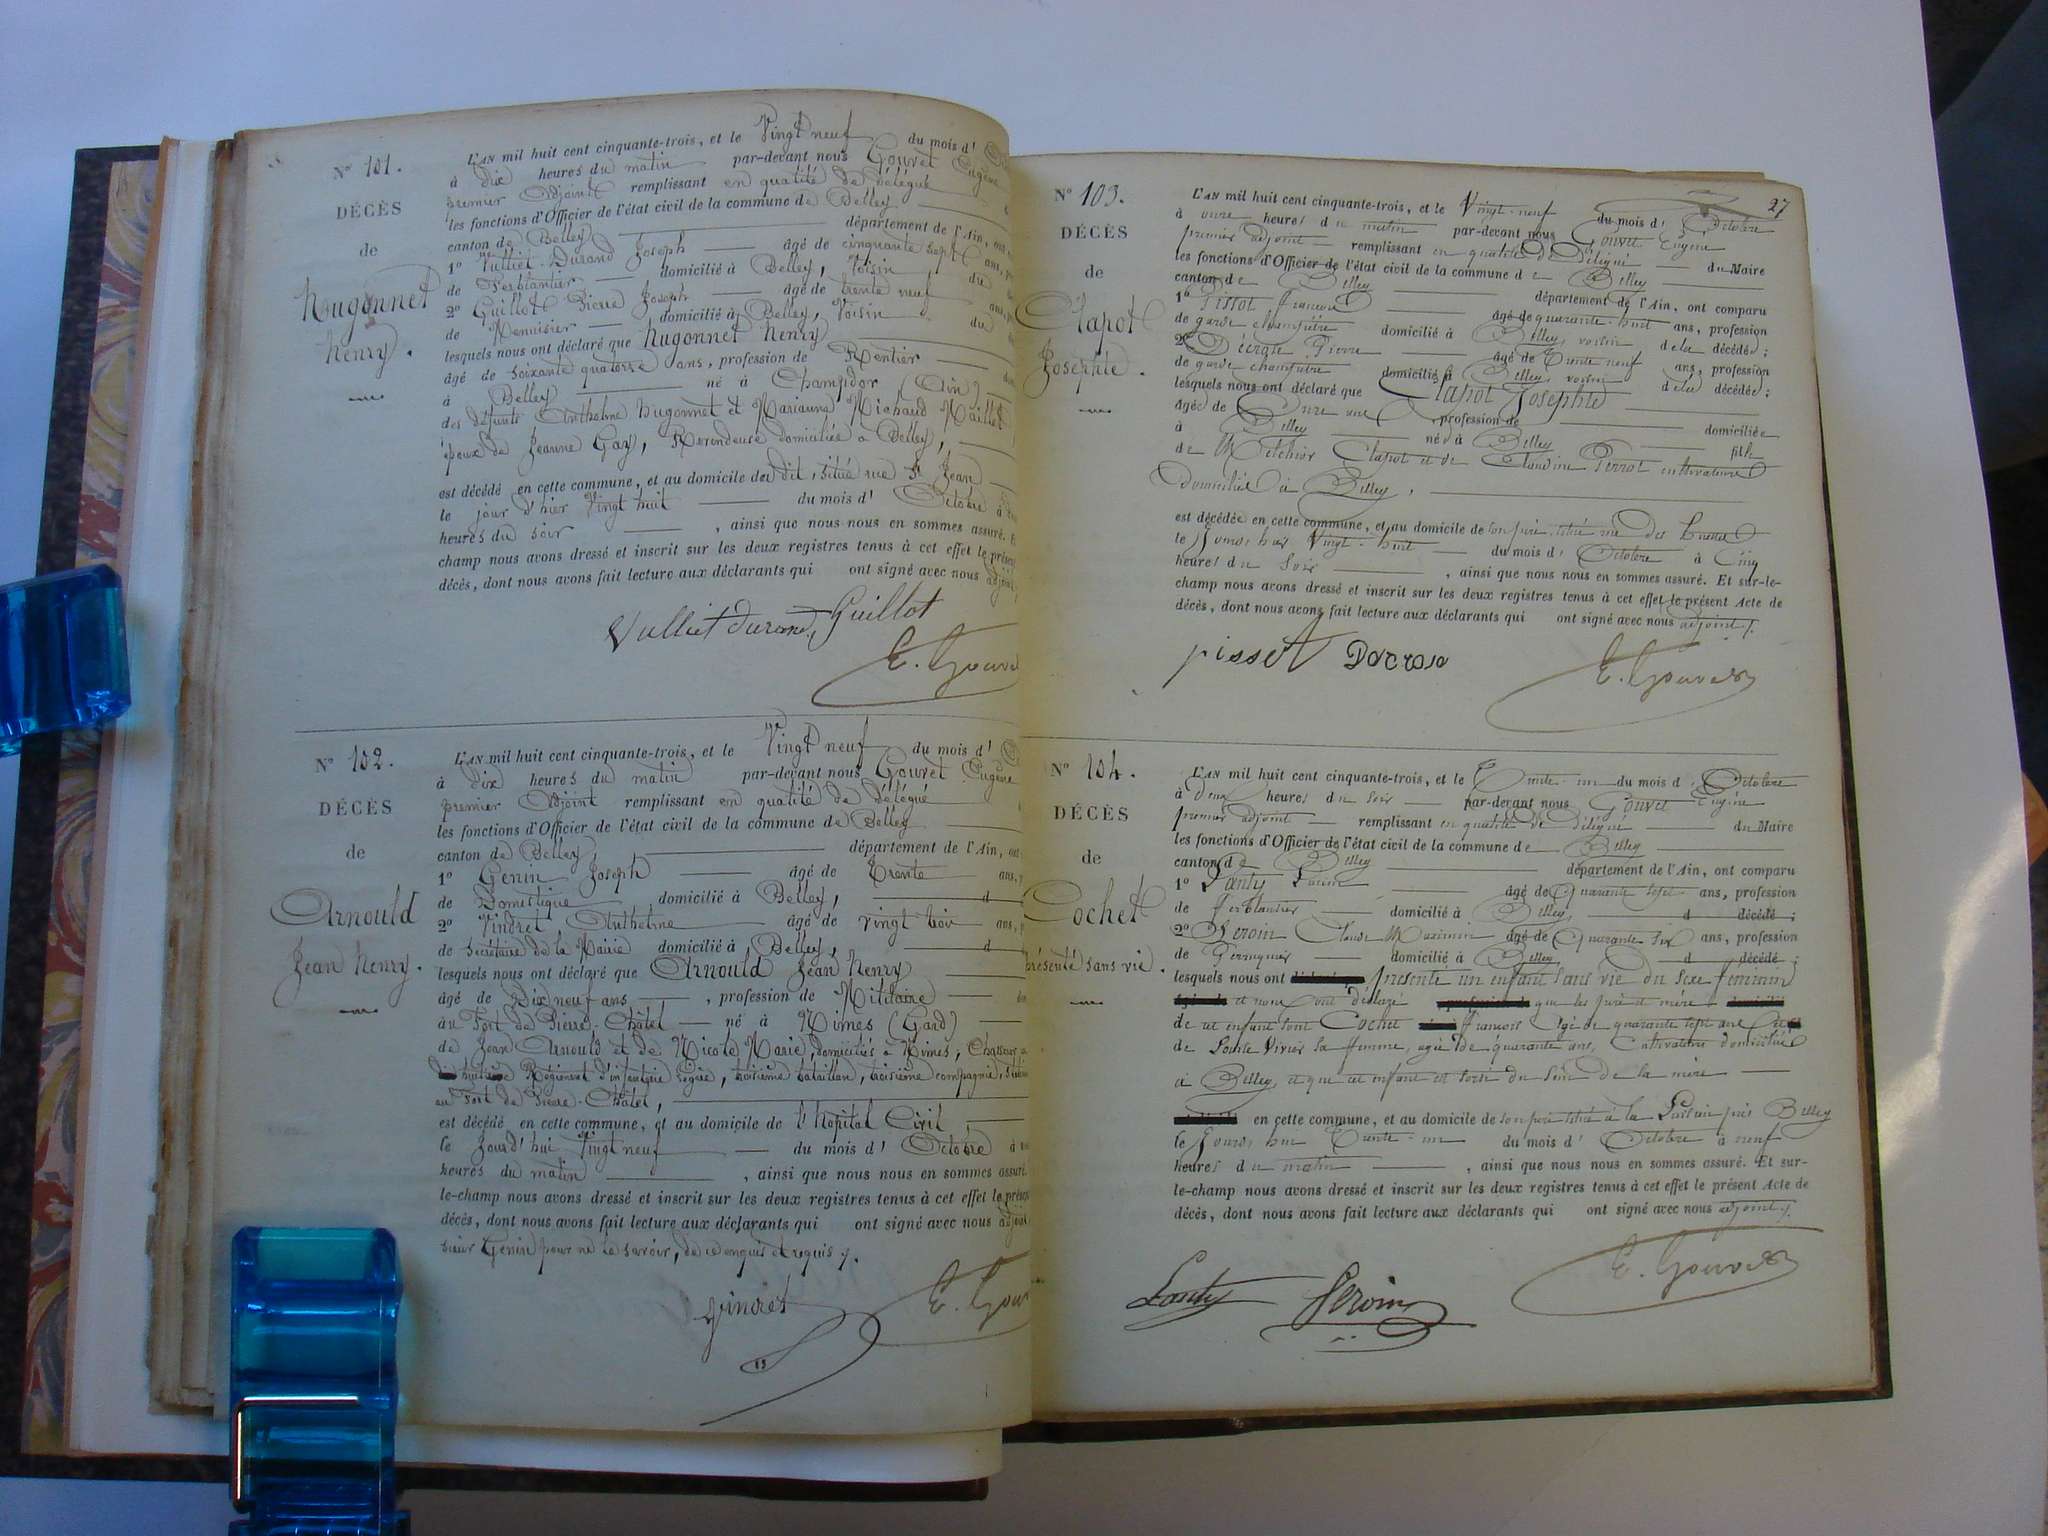 N° 101.
DÉCÈS
de
Hugonnet
Henry.
L'AN mil huit cent cinquante-trois, et le Vingt neuf du mois d'
à Dix heures du matin par-devant nous Gouvet Eugène
premier Adjoint remplissant en qualité de Délégué
les fonctions d'Officier de l'état civil de la commune de Belley
canton de Belley département de l'Ain, ont
1° Vulliet-Durand Joseph âgé de cinquante sept ans,
de Ferblantier domicilié à Belley, Voisin du
2° Guillot Pierre Joseph âgé de trente neuf ans,
de Menuisier domicilié à Belley, Voisin du
lesquels nous ont déclaré que Hugonnet Henry
âgé de soixante quatorze ans, profession de Rentier
à Belley né à Champdor (Ain)
des défunts Anthelme Hugonnet et Marianne Michaud Maillet
époux de Jeanne Gay, Revendeuse domiciliés à Belley,
est décédé en cette commune, et au domicile du dit, situé rue St Jean
le jour d'hier Vingt huit du mois d' Octobre à
heures du soir , ainsi que nous nous en sommes assuré. E
champ nous avons dressé et inscrit sur les deux registres tenus à cet effet le présent
décès, dont nous avons fait lecture aux déclarants qui ont signé avec nous adjoint
Vulliet Durand Guillot
E. Gouve
N° 102.
DÉCÈS
de
Arnould
Jean Henry.
L'AN mil huit cent cinquante-trois, et le Vingt neuf du mois d'
à Dix heures du matin par-devant nous Gouvet Eugène
premier Adjoint remplissant en qualité de Délégué
les fonctions d'Officier de l'état civil de la commune de Belley
canton de Belley département de l'Ain, ont
1° Genin Joseph âgé de Trente ans,
de Domestique domicilié à Belley, d
2° Vindret Anthelme âgé de vingt trois ans,
de Secrétaire de la Mairie domicilié à Belley, d
lesquels nous ont déclaré que Arnould Jean Henry
âgé de Dix neuf ans , profession de Militaire
au Fort de Pierre-Châtel né à Nimes (Gard)
de Jean Arnould et de Nicole Marie, domiciliés à Nimes, Chasseur
Régiment d'infanterie légère, troisième bataillon, troisième compagnie,
au Fort de Pierre-Châtel,
est décédé en cette commune, et au domicile de l'hopital Civil
le Jourd'hui Vingt neuf du mois d' Octobre à
heures du matin , ainsi que nous nous en sommes assuré.
le-champ nous avons dressé et inscrit sur les deux registres tenus à cet effet le présent
décès, dont nous avons fait lecture aux déclarants qui ont signé avec nous adjoint
sieur Genin pour ne le savoir, de ce enquis et requis.
Vindret E. Gouv
27
N° 103.
DÉCÈS
de
Clapot
Josephte.
L'AN mil huit cent cinquante-trois, et le Vingt-neuf du mois d' Octobre
à onze heures du matin par-devant nous Gouvet Eugène
premier adjoint remplissant en qualité de Délégué du Maire
les fonctions d'Officier de l'état civil de la commune de Belley
canton de Belley département de l'Ain, ont comparu
1° Pissot françois âgé de quarante-huit ans, profession
de garde champêtre domicilié à Belley, voisin de la décédée;
2° Décroze Pierre âgé de Trente neuf ans, profession
de garde champêtre domicilié à Belley, voisin de la décédée;
lesquels nous ont déclaré que Clapot Josephte
âgée de Onze ans , profession de domiciliée
à Belley née à Belley fille
de Melchior Clapot et de Claudine Perrot cultivateurs
domiciliés à Belley,
est décédée en cette commune, et au domicile de son père, située rue des
le Jour d'hier Vingt-huit du mois d' Octobre à Cinq
heures du Soir , ainsi que nous nous en sommes assuré. Et sur-le-
champ nous avons dressé et inscrit sur les deux registres tenus à cet effet le présent Acte de
décès, dont nous avons fait lecture aux déclarants qui ont signé avec nous adjoint.
pissot
E. Gouvet
N° 104.
DÉCÈS
de
Cochet
présenté sans vie.
L'AN mil huit cent cinquante-trois, et le Trente-un du mois d' Octobre
à deux heures du soir par-devant nous Gouvet Eugène
premier adjoint remplissant en qualité de Délégué du Maire
les fonctions d'Officier de l'état civil de la commune de Belley
canton de Belley département de l'Ain, ont comparu
1° Lanty âgé de Quarante sept ans, profession
de ferblantier domicilié à Belley, d décédé;
2° Peroin Claude Maximin âgé de Quarante six ans, profession
de Perruquier domicilié à Belley d décédé;
lesquels nous ont présenté un enfant sans vie du sexe féminin
et nous ont déclaré que les père et mère
de cet enfant sont Cochet françois âgé de quarante sept ans et
de Louise Vivier sa femme, agée de quarante ans, Cultivateurs domiciliés
à Belley, et que cet enfant est sorti du sein de la mère
en cette commune, et au domicile de son père située à la près Belley
le Jourd'hui Trente-un du mois d' Octobre à neuf
heures du matin , ainsi que nous nous en sommes assuré. Et sur-
le-champ nous avons dressé et inscrit sur les deux registres tenus à cet effet le présent Acte de
décès, dont nous avons fait lecture aux déclarants qui ont signé avec nous adjoint.
Lanty Peroin
E. Gouvet